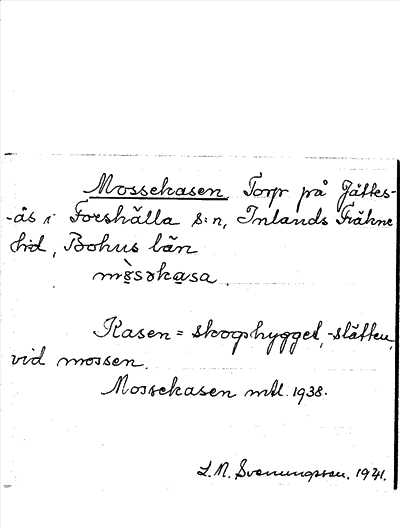 Mossekasen Torp på Jättes-
-ås i Forshälla s:n, Inlands Fräkne
hd, Bohus län
mò̤səka̤sa.
Kasen = skogshygget, -slätten,
vid mossen.
Mossekasen mtl. 1938.
L.N. Svenungsson. 1921.